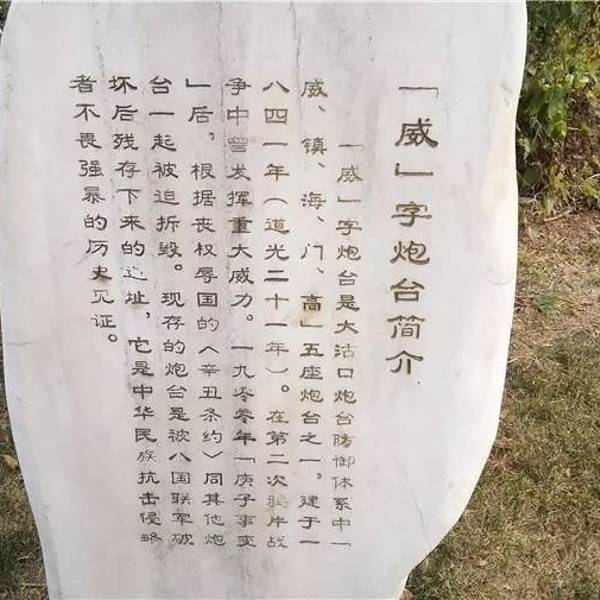 「威」字炮台简介
「威」字炮台是大沽口炮台防御体系中「
威、镇、海、门、高」五座炮台之一。建于一
八四一年(道光二十一年)。在第二次鸦片战
争中曾发挥重大威力。一九零零年「庚子事变
」后，根据丧权辱国的〈辛丑条约〉同其他炮
台一起被迫拆毁。现存的炮台是被八国联军破
坏后残存下来的遗址，它是中华民族抗击侵略
者不畏强暴的历史见证。